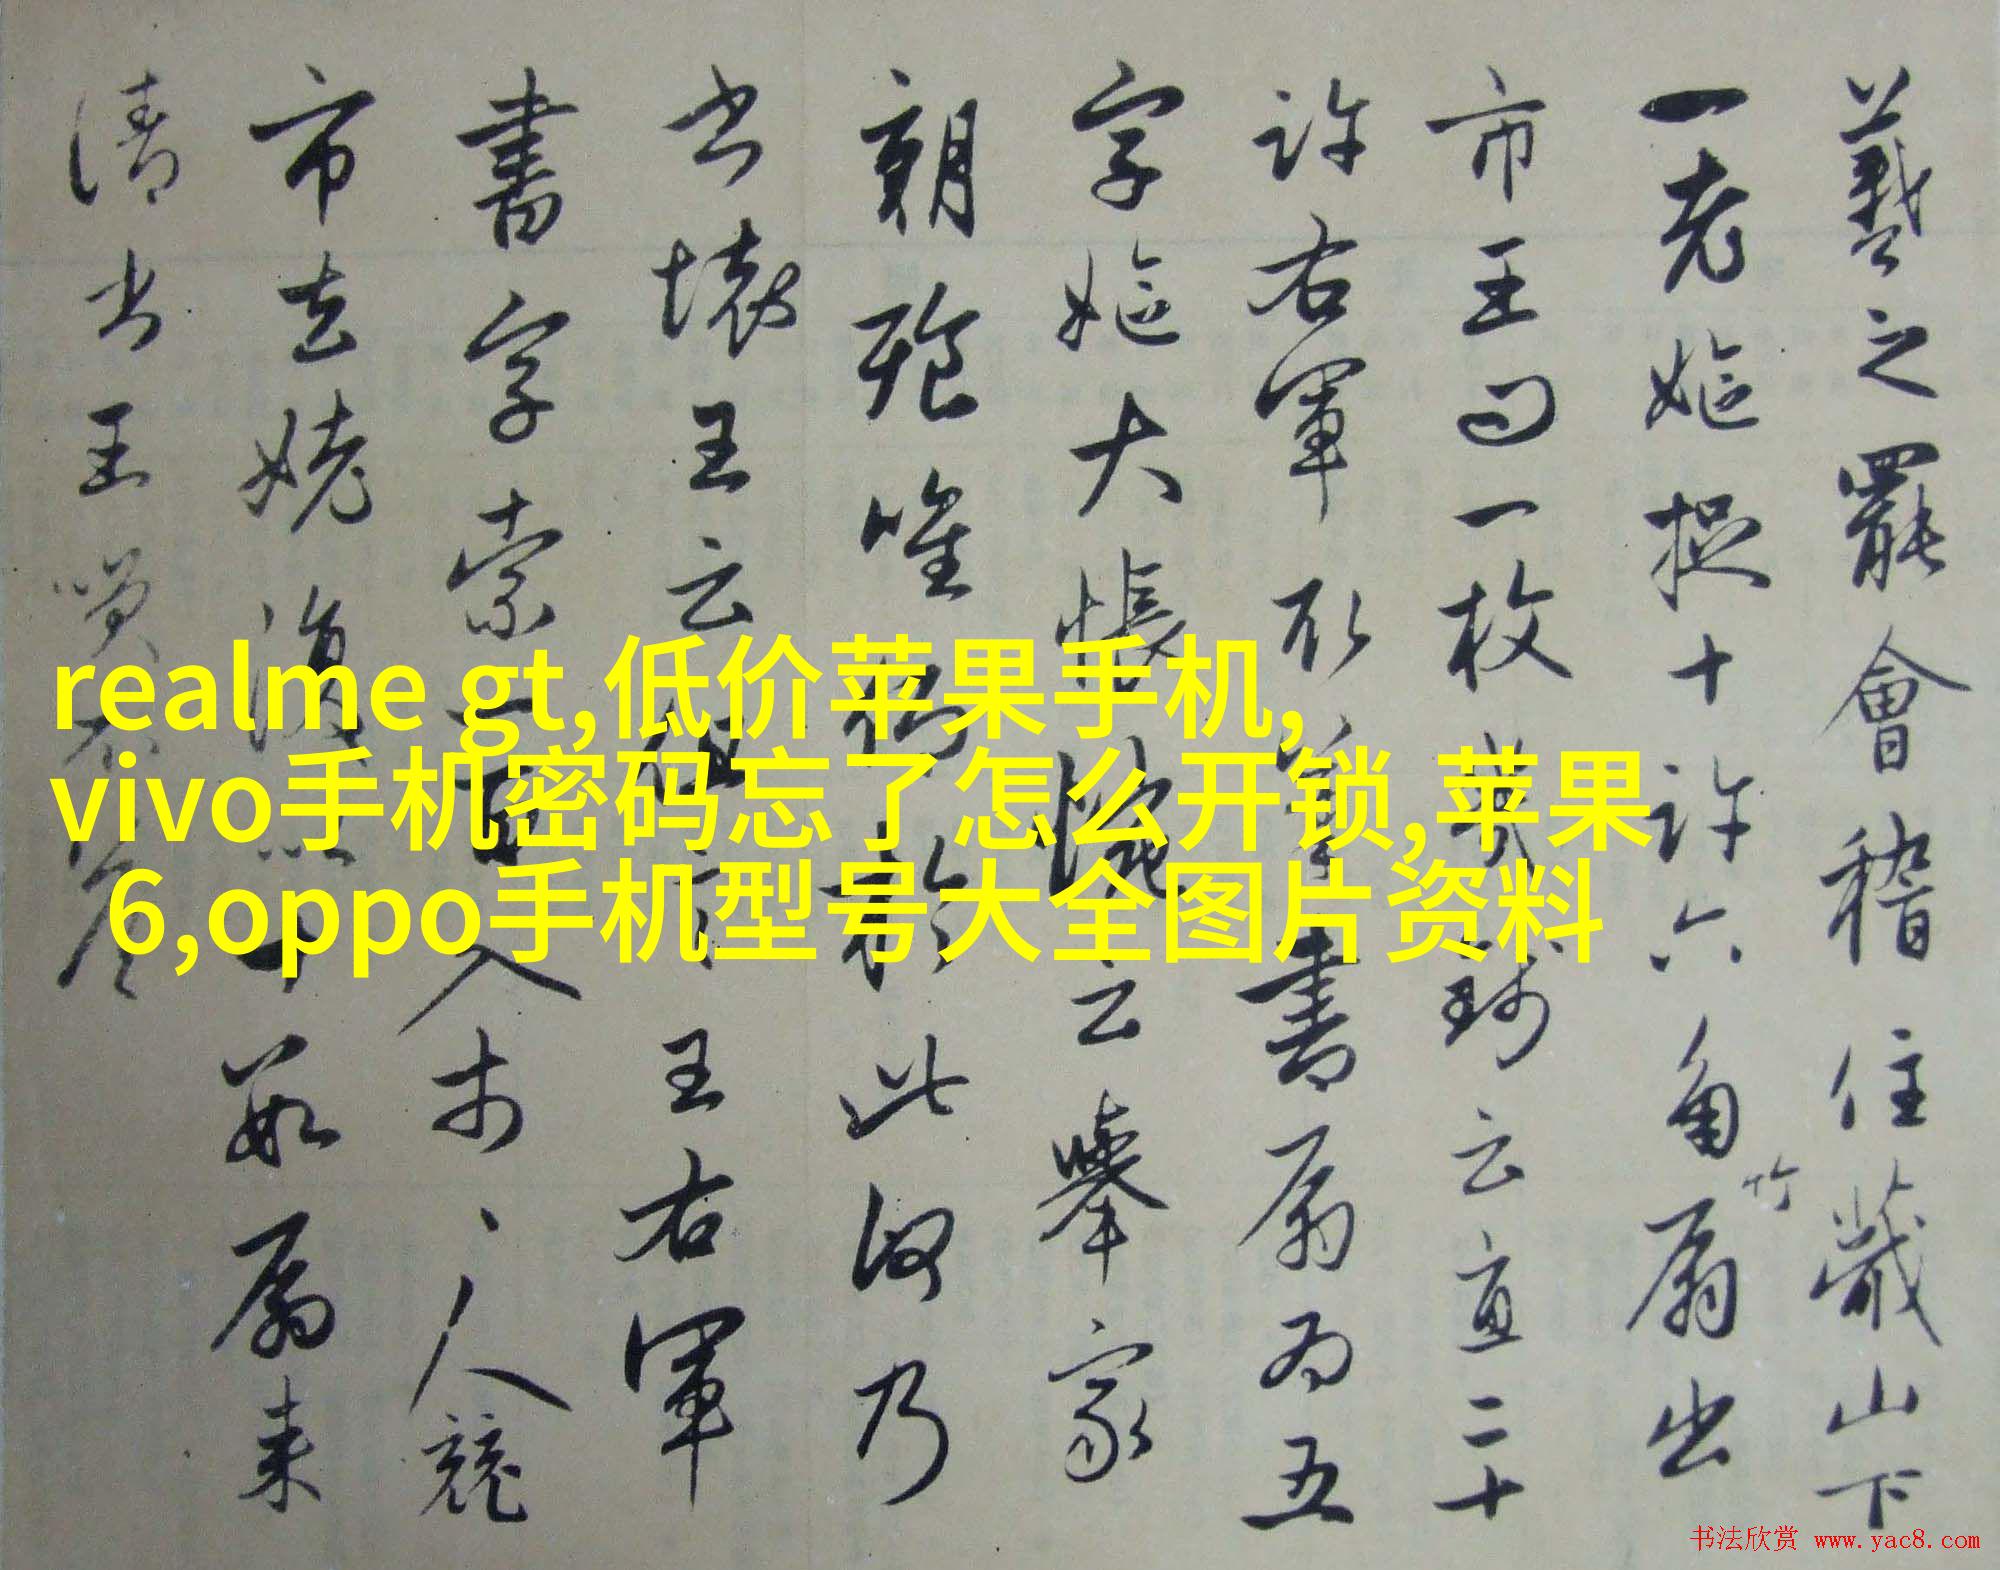 羲之罷會稽住蕺山下
一老嫗捉十許六角竹扇出
市王問一枚幾錢云直二十
許右軍取筆書扇為五
字嫗大悵惋云舉家
朝飱唯仰於此何乃
書壞王云但言王右軍
書字索一百入市〻人競
市去姥復以十數扇來
請書王笑不答
realme gt,低价苹果手机,
vivo手机密码忘了怎么开锁,苹果
6,oppo手机型号大全图片资料
书法欣赏 www.yac8.com